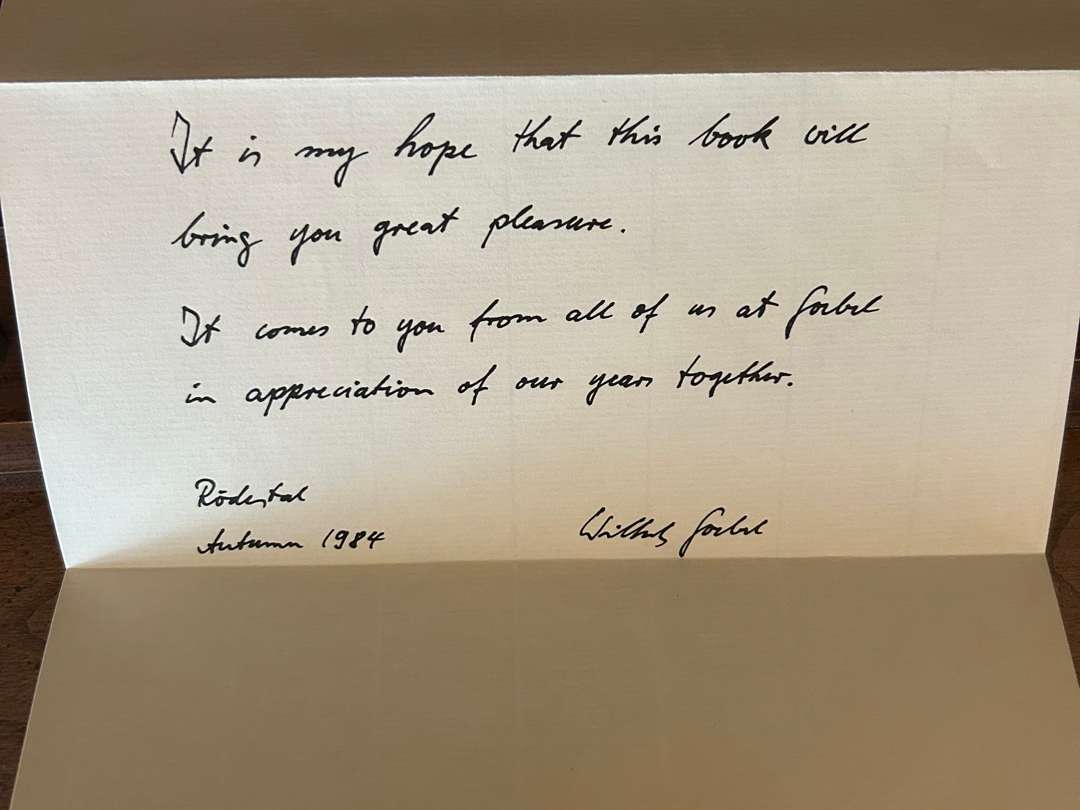 It is my hope that this book will
bring you great pleasure.
It comes to you from all of us at Goebel
in appreciation of our years together.
Rödental
Autumn 1984
Wilhelm Goebel